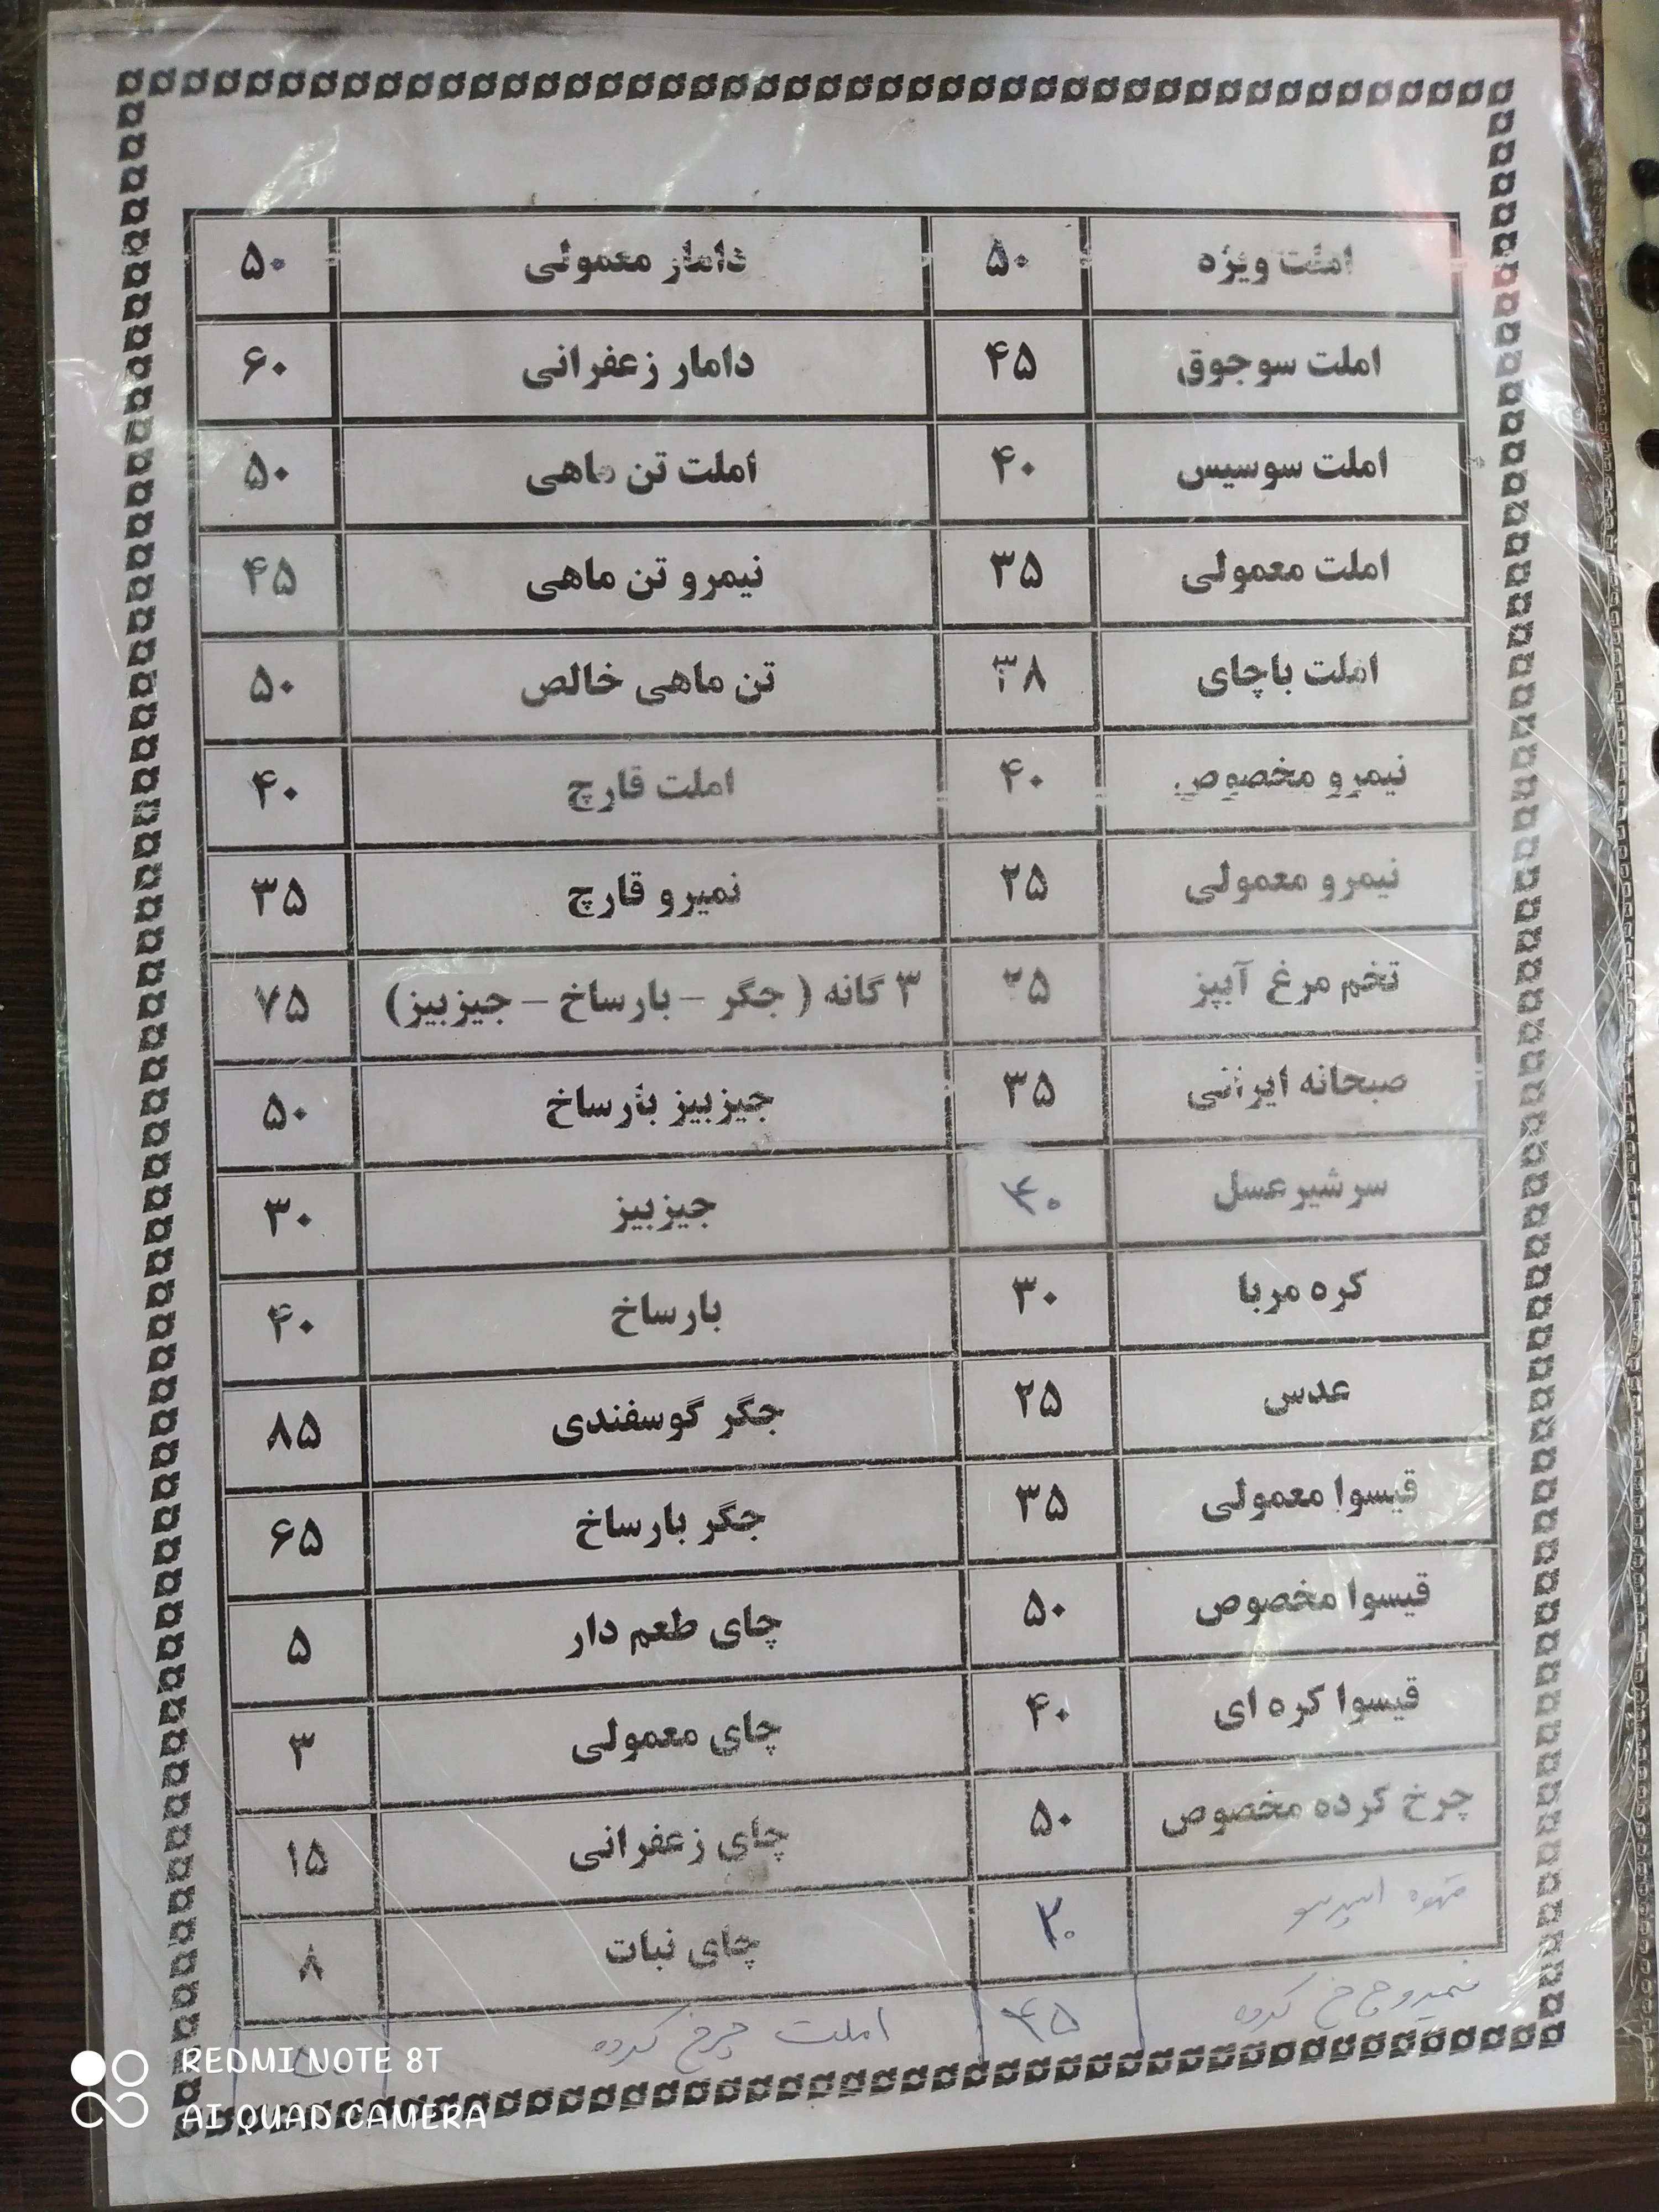 املت ویژه ۵۰ دامار معمولی ۵۰
املت سوجوق ۴۵ دامار زعفرانی ۶۰
املت سوسیس ۴۰ املت تن ماهی ۵۰
املت معمولی ۳۵ نیمرو تن ماهی ۴۵
املت باچای ۳۸ تن ماهی خالص ۵۰
نیمرو مخصوص ۴۰ املت قارچ ۴۰
نیمرو معمولی ۲۵ نمیرو قارچ ۳۵
تخم مرغ آبپز ۲۵ ۳ گانه ( جگر – بارساخ – جیزبیز) ۷۵
صبحانه ایرانی ۳۵ جیزبیز بارساخ ۵۰
سرشیر عسل ۴۰ جیزبیز ۳۰
کره مربا ۳۰ بارساخ ۴۰
عدس ۲۵ جگر گوسفندی ۸۵
قیسوا معمولی ۳۵ جگر بارساخ ۶۵
قیسوا مخصوص ۵۰ چای طعم دار ۵
قیسوا کره ای ۴۰ چای معمولی ۳
چرخ کرده مخصوص ۵۰ چای زعفرانی ۱۵
قهوه اسپرسو ۳۰ چای نبات ۸
نیمرو چرخ کرده ۴۵ املت چرخ کرده
REDMI NOTE 8T
AI QUAD CAMERA